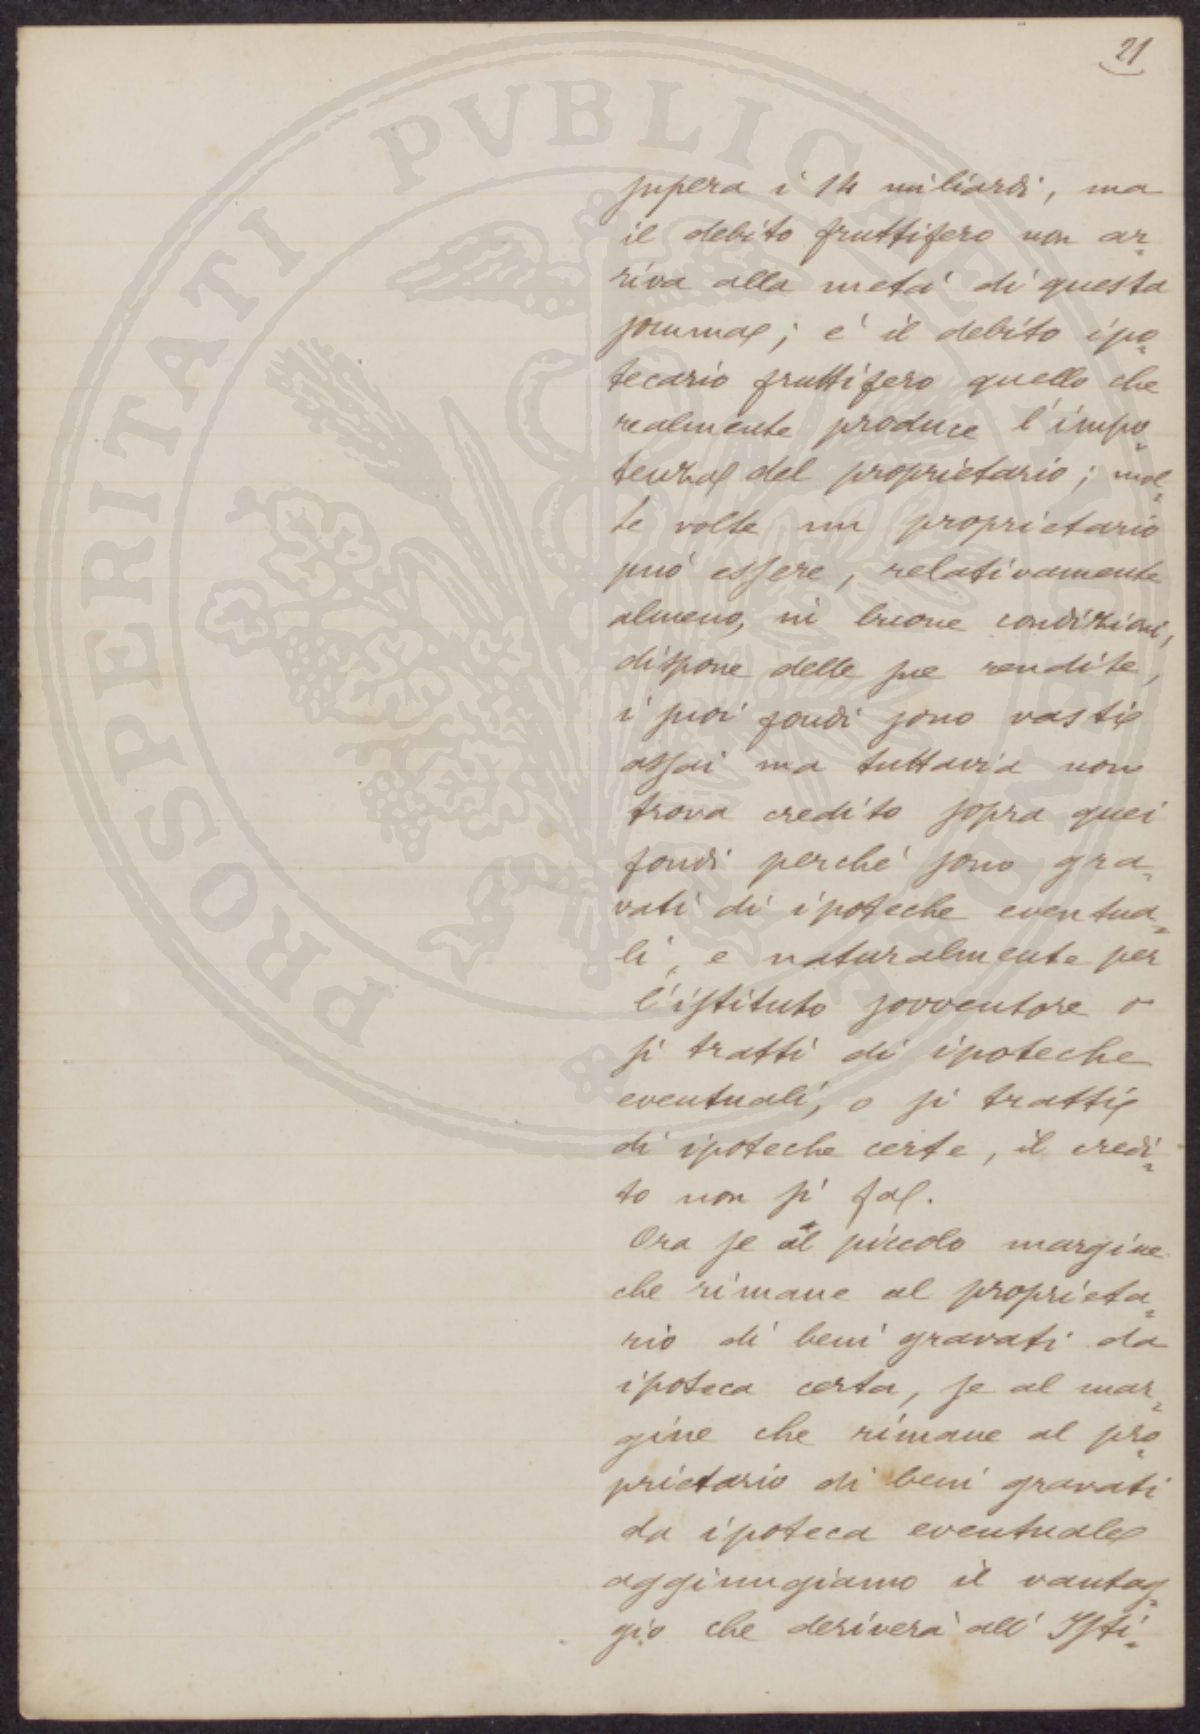 21
supera i 14 miliardi, ma
il debito fruttifero non ar=
riva alla metà di questa
somma; è il debito ipo=
tecario fruttifero quello che
realmente produce l'impo=
tenza del proprietario; mol=
te volte un proprietario
può essere, relativamente
almeno, in buone condizioni,
dispone delle sue rendite,
i suoi fondi sono vasti
assai ma tuttavia non
trova credito sopra quei
fondi perché sono gra=
vati di ipoteche eventua=
li, e naturalmente per
l'istituto sovventore o
si tratti di ipoteche
eventuali, o si tratti
di ipoteche certe, il credi=
to non si fa.
Ora se al piccolo margine
che rimane al proprieta=
rio di beni gravati da
ipoteca certa, se al mar=
gine che rimane al pro=
prietario di beni gravati
da ipoteca eventuale
aggiungiamo il vantag=
gio che deriverà all'Isti=
PROSPERITATI PVBLICAE